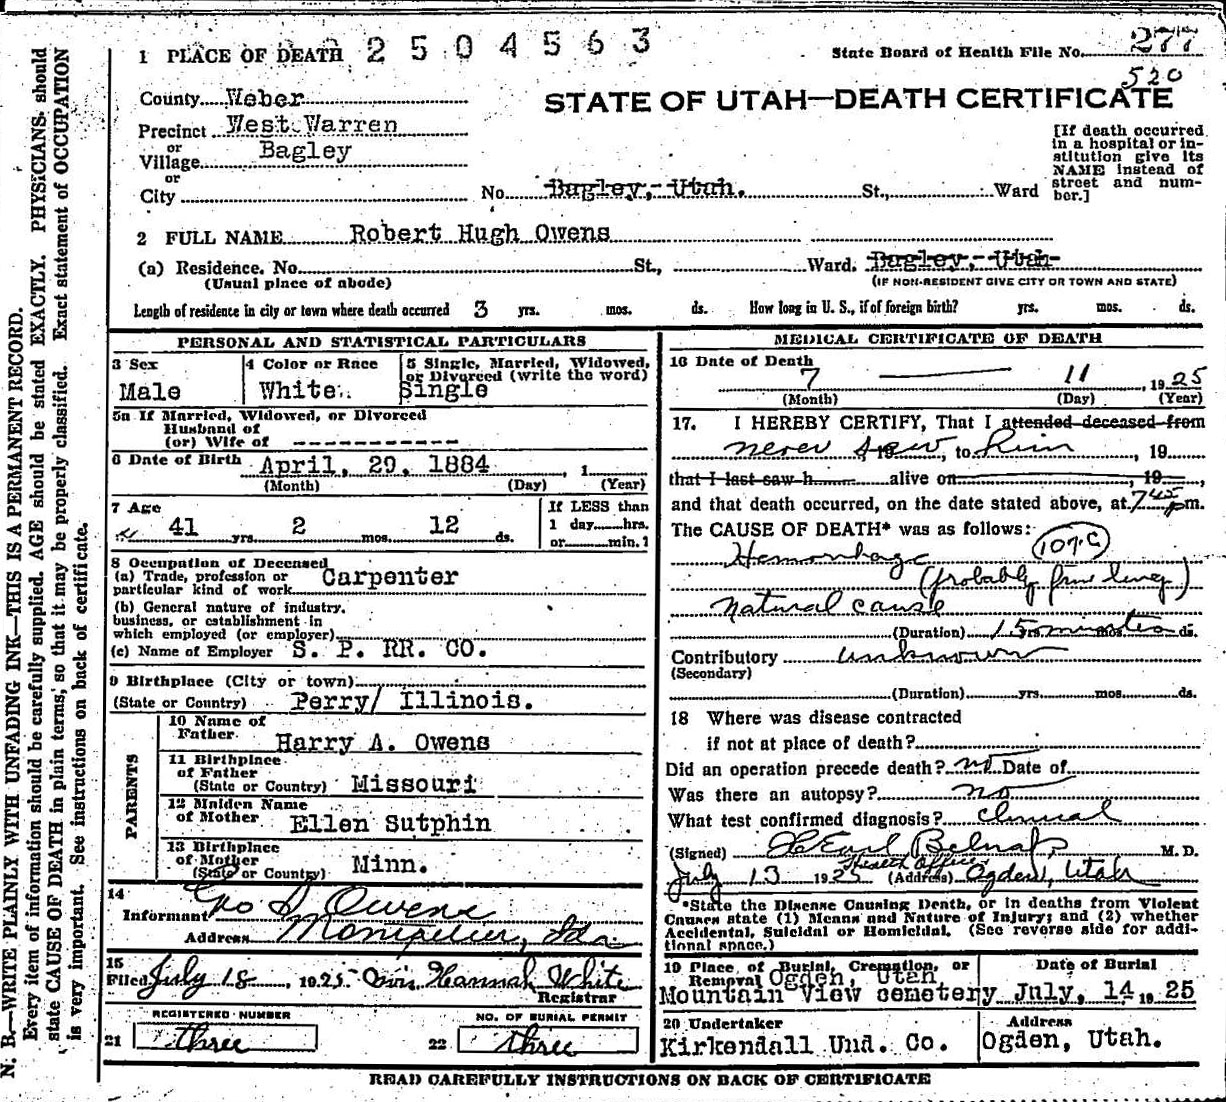 N. B.—WRITE PLAINLY WITH UNFADING INK—THIS IS A PERMANENT RECORD.
Every item of information should be carefully supplied. AGE should be stated EXACTLY. PHYSICIANS should
state CAUSE OF DEATH in plain terms, so that it may be properly classified. Exact statement of OCCUPATION
is very important. See instructions on back of certificate.
1 PLACE OF DEATH 2504563
State Board of Health File No. 277
520
County Weber
STATE OF UTAH—DEATH CERTIFICATE
Precinct West Warren
or
Village Bagley
or
City
No. Bagley, Utah. St., Ward
[If death occurred
in a hospital or in-
stitution give its
NAME instead of
street and num-
ber.]
2 FULL NAME Robert Hugh Owens
(a) Residence. No. St., Ward. Bagley, Utah
(Usual place of abode) (IF NON-RESIDENT GIVE CITY OR TOWN AND STATE)
Length of residence in city or town where death occurred 3 yrs. mos. ds. How long in U. S., if of foreign birth? yrs. mos. ds.
PERSONAL AND STATISTICAL PARTICULARS
3 Sex
Male
4 Color or Race
White
5 Single, Married, Widowed,
or Divorced (write the word)
Single
5a If Married, Widowed, or Divorced
Husband of
(or) Wife of ----------
6 Date of Birth April, 29, 1884, 1
(Month) (Day) (Year)
7 Age
41 yrs. 2 mos. 12 ds.
If LESS than
1 day hrs.
or min.1
8 Occupation of Deceased
(a) Trade, profession or
particular kind of work Carpenter
(b) General nature of industry,
business, or establishment in
which employed (or employer)
(c) Name of Employer S. P. RR. CO.
9 Birthplace (City or town)
(State or Country) Perry/ Illinois.
PARENTS
10 Name of
Father Harry A. Owens
11 Birthplace
of Father
(State or Country) Missouri
12 Maiden Name
of Mother Ellen Sutphin
13 Birthplace
of Mother
(State or Country) Minn.
14
Informant Geo D Owens
Address Montpelier, Ida
15
Filed July 18, 1925 Mrs Hannah White
Registrar
REGISTERED NUMBER
21 three
NO. OF BURIAL PERMIT
22 three
MEDICAL CERTIFICATE OF DEATH
16 Date of Death
7 — 11, 1925
(Month) (Day) (Year)
17. I HEREBY CERTIFY, That I attended deceased from
never saw, 19, to him, 19
that I last saw h alive on, 19,
and that death occurred, on the date stated above, at 7 45 pm.
The CAUSE OF DEATH* was as follows:
Hemorrhage 107.c
(probably from lung)
natural cause
(Duration) 15 minutes yrs. mos. ds.
Contributory unknown
(Secondary)
(Duration) yrs. mos. ds.
18 Where was disease contracted
if not at place of death?
Did an operation precede death? no Date of
Was there an autopsy? no
What test confirmed diagnosis? clinical
(Signed) Earl Belnap M. D.
Health Officer
July 13 1925 (Address) Ogden, Utah
*State the Disease Causing Death, or in deaths from Violent
Causes state (1) Means and Nature of Injury; and (2) whether
Accidental, Suicidal or Homicidal. (See reverse side for addi-
tional space.)
19 Place of Burial, Cremation, or
Removal Ogden, Utah
Mountain View cemetery
Date of Burial
July, 14 1925
20 Undertaker
Kirkendall Und. Co.
Address
Ogden, Utah.
READ CAREFULLY INSTRUCTIONS ON BACK OF CERTIFICATE